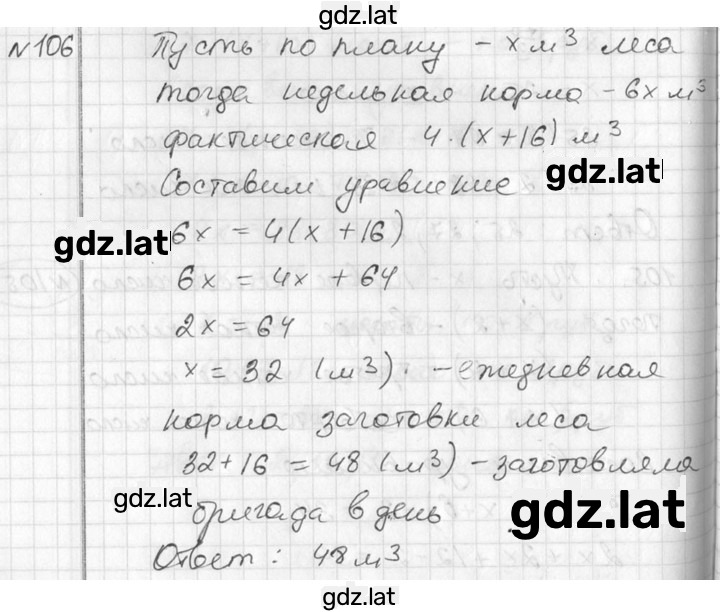 gdz.lat
№106 Пусть по плану - x м³ леса
тогда недельная норма - 6x м³
фактическая 4·(x+16) м³
gdz.lat
Составим уравнение
gdz.lat
6x = 4(x+16)
6x = 4x + 64
2x = 64
x = 32 (м³) - ежедневная
норма заготовки леса
32+16 = 48 (м³) - заготовляла
gdz.lat
бригада в день
gdz.lat
Ответ: 48 м³
gdz.lat